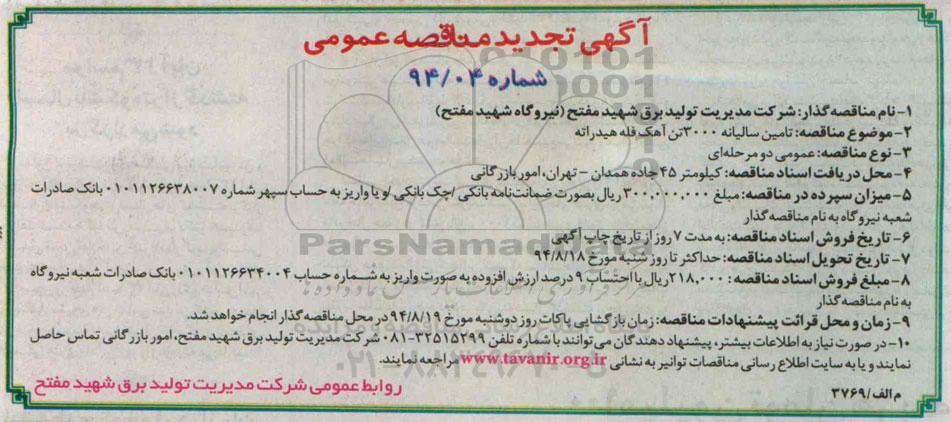 آگهی تجدید مناقصه عمومی
شماره ۹۴/۰۴
۱- نام مناقصه گذار: شرکت مدیریت تولید برق شهید مفتح (نیروگاه شهید مفتح)
۲- موضوع مناقصه: تامین سالیانه ۳۰۰۰ تن آهک فله هیدراته
۳- نوع مناقصه: عمومی دو مرحله‌ای
۴- محل دریافت اسناد مناقصه: کیلومتر ۴۵ جاده همدان - تهران، امور بازرگانی
۵- میزان سپرده در مناقصه: مبلغ ۳۰۰,۰۰۰,۰۰۰ ریال بصورت ضمانت‌نامه بانکی /چک بانکی /و یا واریز به حساب سپهر شماره ۰۱۰۱۱۲۶۶۳۸۰۰۷ بانک صادرات
شعبه نیروگاه به نام مناقصه گذار
۶- تاریخ فروش اسناد مناقصه: به مدت ۷ روز از تاریخ چاپ آگهی
۷- تاریخ تحویل اسناد مناقصه: حداکثر تا روز شنبه مورخ ۹۴/۸/۱۸
۸- مبلغ فروش اسناد مناقصه: ۲۱۸,۰۰۰ ریال با احتساب ۹ درصد ارزش افزوده به صورت واریز به شماره حساب ۰۱۰۱۱۲۶۶۳۴۰۰۴ بانک صادرات شعبه نیروگاه
به نام مناقصه گذار
۹- زمان و محل قرائت پیشنهادات مناقصه: زمان بازگشایی پاکات روز دوشنبه مورخ ۹۴/۸/۱۹ در محل مناقصه گذار انجام خواهد شد.
۱۰- در صورت نیاز به اطلاعات بیشتر، پیشنهاد دهندگان می توانند با شماره تلفن ۳۲۵۱۵۲۹۹-۰۸۱ شرکت مدیریت تولید برق شهید مفتح، امور بازرگانی تماس حاصل
نمایند و یا به سایت اطلاع رسانی مناقصات توانیر به نشانی www.tavanir.org.ir مراجعه نمایند.
م الف/۳۷۶۹
روابط عمومی شرکت مدیریت تولید برق شهید مفتح
ParsNamadData
۰۲۱-۸۸۳۴۹۶۷۰-۵